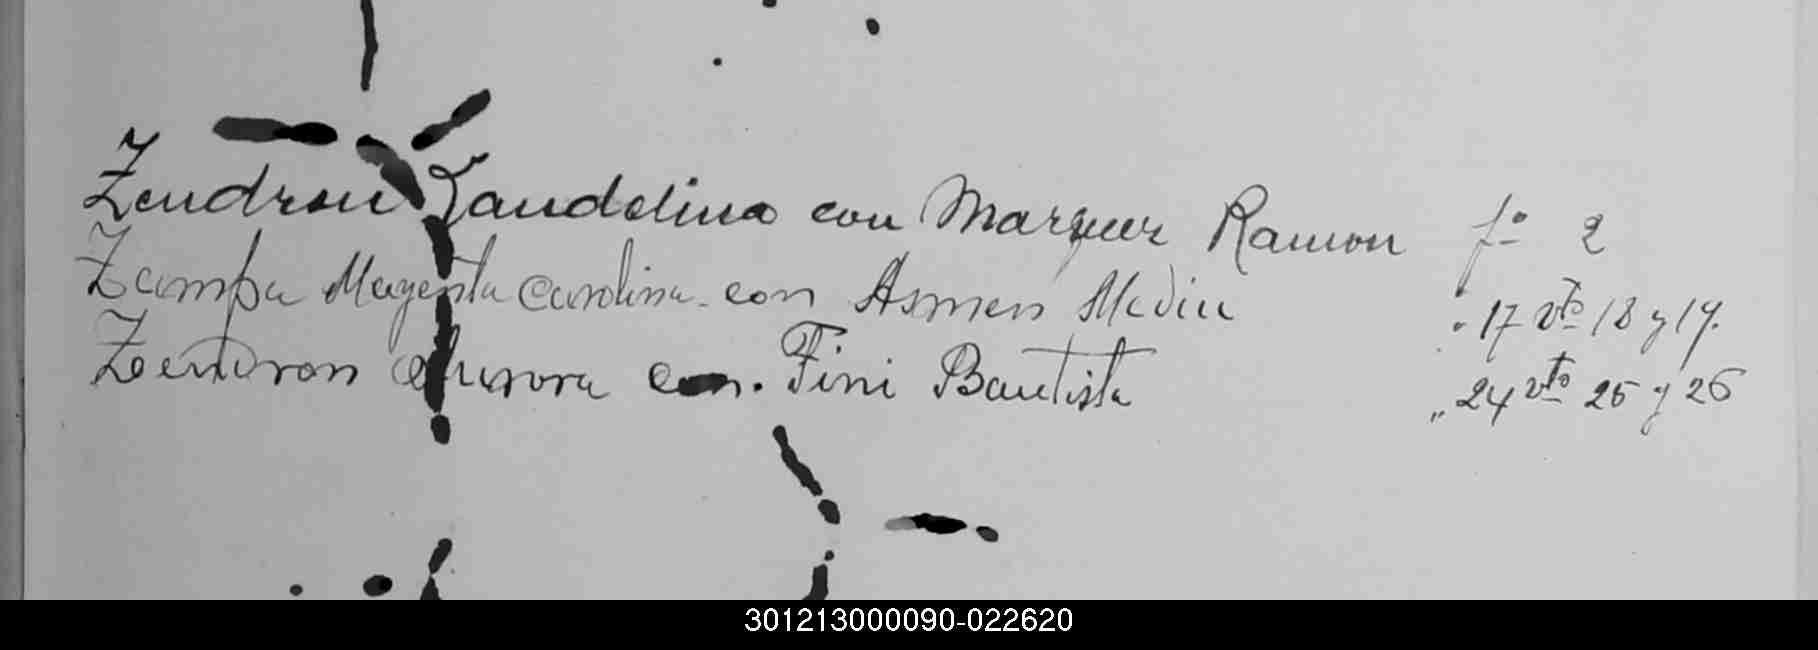 Zendron Gaudelina con Marquer Ramon fº 2
Zampa Magenta Carolina con Asmen Mediu " 17 vto 18 y 19.
Zendron Aurora con. Fini Bautista " 24 vto 25 y 26
301213000090-022620